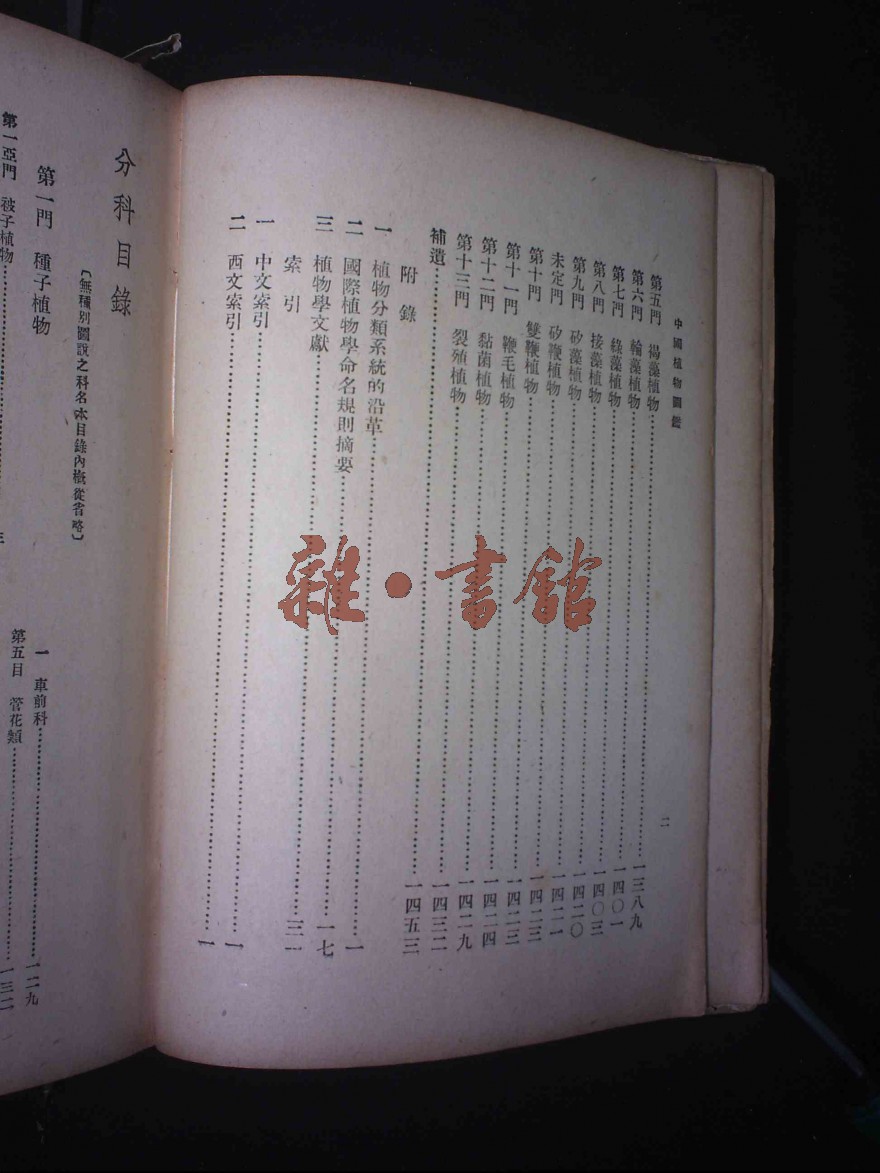 中國植物圖鑑
二
第五門 褐藻植物……一三八九
第六門 輪藻植物……一四〇一
第七門 綠藻植物……一四〇三
第八門 接藻植物……一四二〇
第九門 矽藻植物……一四二一
未定門 矽鞭植物……一四二三
第十門 雙鞭植物……一四二三
第十一門 鞭毛植物……一四二四
第十二門 黏菌植物……一四二九
第十三門 裂殖植物……一四三二
補遺……一四五三
附錄
一 植物分類系統的沿革……一
二 國際植物學命名規則摘要……一七
三 植物學文獻……三一
索引
一 中文索引……一
二 西文索引……一
雜·書館
分科目錄
〔無種別圖說之科名本目錄內概從省略〕
第一門 種子植物
第一亞門 被子植物……三
一 車前科……一二九
第五目 管花類……一三二